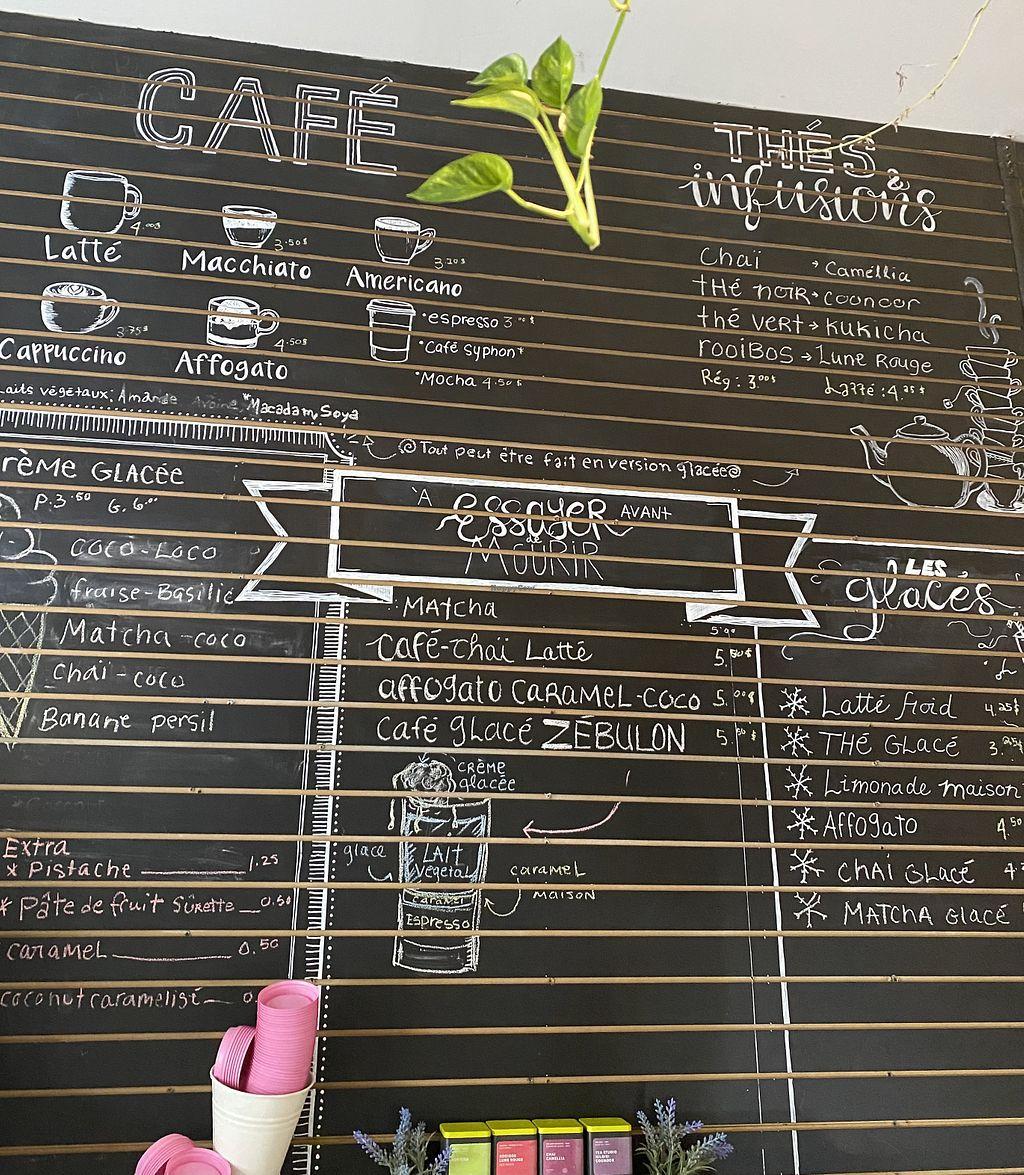 CAFÉ
Latté 4.00$
Macchiato 3.50$
Americano
Cappuccino 3.75$
Affogato 4.50$
*espresso
*Café syphon*
*Mocha 4.50$
Laits végétaux: Amande *Macadam, Soya
@Tout peut être fait en version glacée@
THÉS &
infusions
Chaï → Caméllia
tHé noir → coonoor
thé vert → Kukicha
rooïBos → Lune Rouge
Rég: 3.00$ Latté: 4.25$
CRÈME GLACÉE
P: 3.50 G. 6.00
coco-Loco
fraise-Basilic
Matcha-coco
chaï-coco
Banane persil
Extra
* Pistache 1.25
* Pâte de fruit Sûrette 0.50
caramel 0.50
coconut caramelisé 0.
À ESSAYER AVANT
de
MOURIR
MAtcha
café-chaï Latté
affogato CARAMEL-COCO 5.00$
café glacé ZÉBULON
CRÈME
glacée
glace
LAIt
végétal
caramel
Espresso
caramel
maison
LES
glacés
Latté froid 4.25$
tHÉ GLACÉ
Limonade maison
Affogato 4.50
CHAï GLACÉ
MATCHA GLACÉ
HappyCow